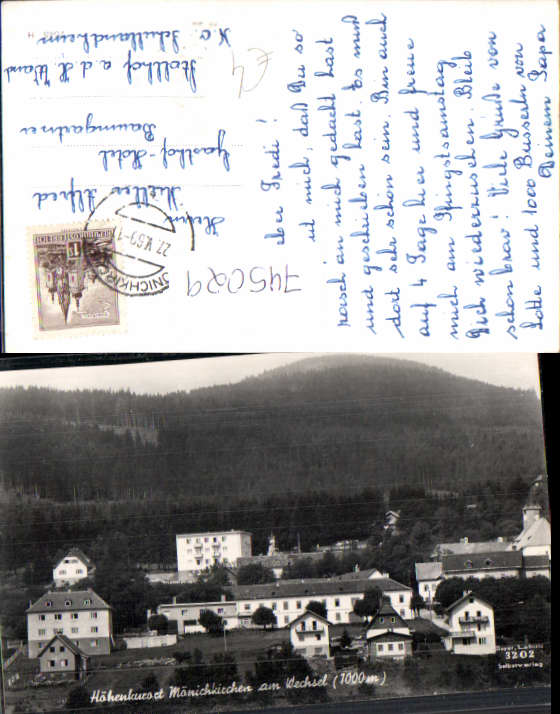 Lieber Fredi!
mich, daß Du so
rasch an mich gedacht hast
und geschrieben hast. Es muß
dort sehr schön sein. Bin auch
auf 4 Tage hier und freue
mich am Pfingstsamstag
Dich wiederzusehen. Bleib
schön brav! Viele Grüße von
Lotte und 1000 Busserln von
Deinem Papa
Herrn
Alfred
Gasthof-Hotel
Baumgartner
Stollhof a. d. H. Wand
N.Ö. Schullandheim
REPUBLIK ÖSTERREICH
745029
€4
Höhenkurort Mönichkirchen am Wechsel (1000m)
3202
Selbstverlag